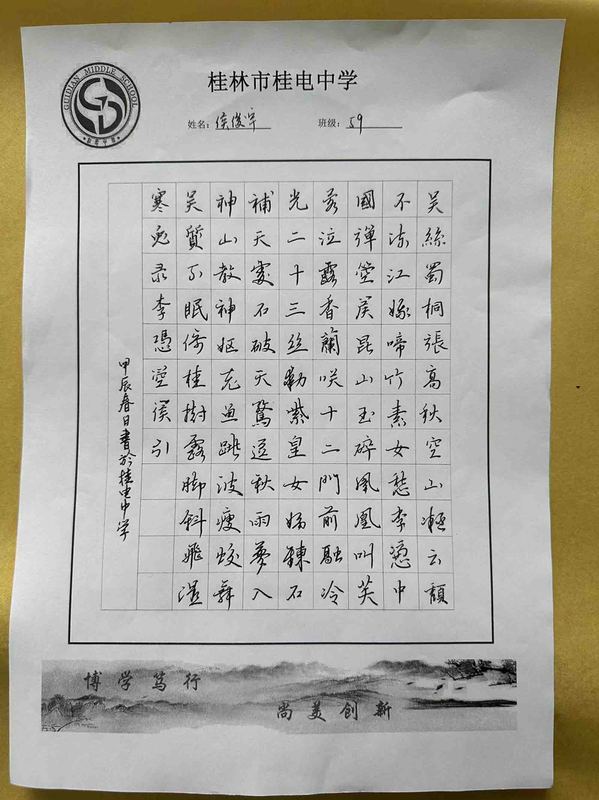 GUIDIAN MIDDLE SCHOOL
桂林市桂电中学
姓名：侯俊宇 班级：59
吴絲蜀桐張高秋空山凝云頹
不流江娥啼竹素女愁李憑中
國彈箜篌昆山玉碎鳳凰叫芙
蓉泣露香蘭咲十二門前融冷
光二十三丝動紫皇女媧鍊石
補天處石破天驚逗秋雨夢入
神山教神妪老鱼跳波瘦蛟舞
吴質不眠倚桂樹露脚斜飛湿
寒兔录李憑箜篌引
甲辰春日書於桂电中学
博学笃行
尚美创新